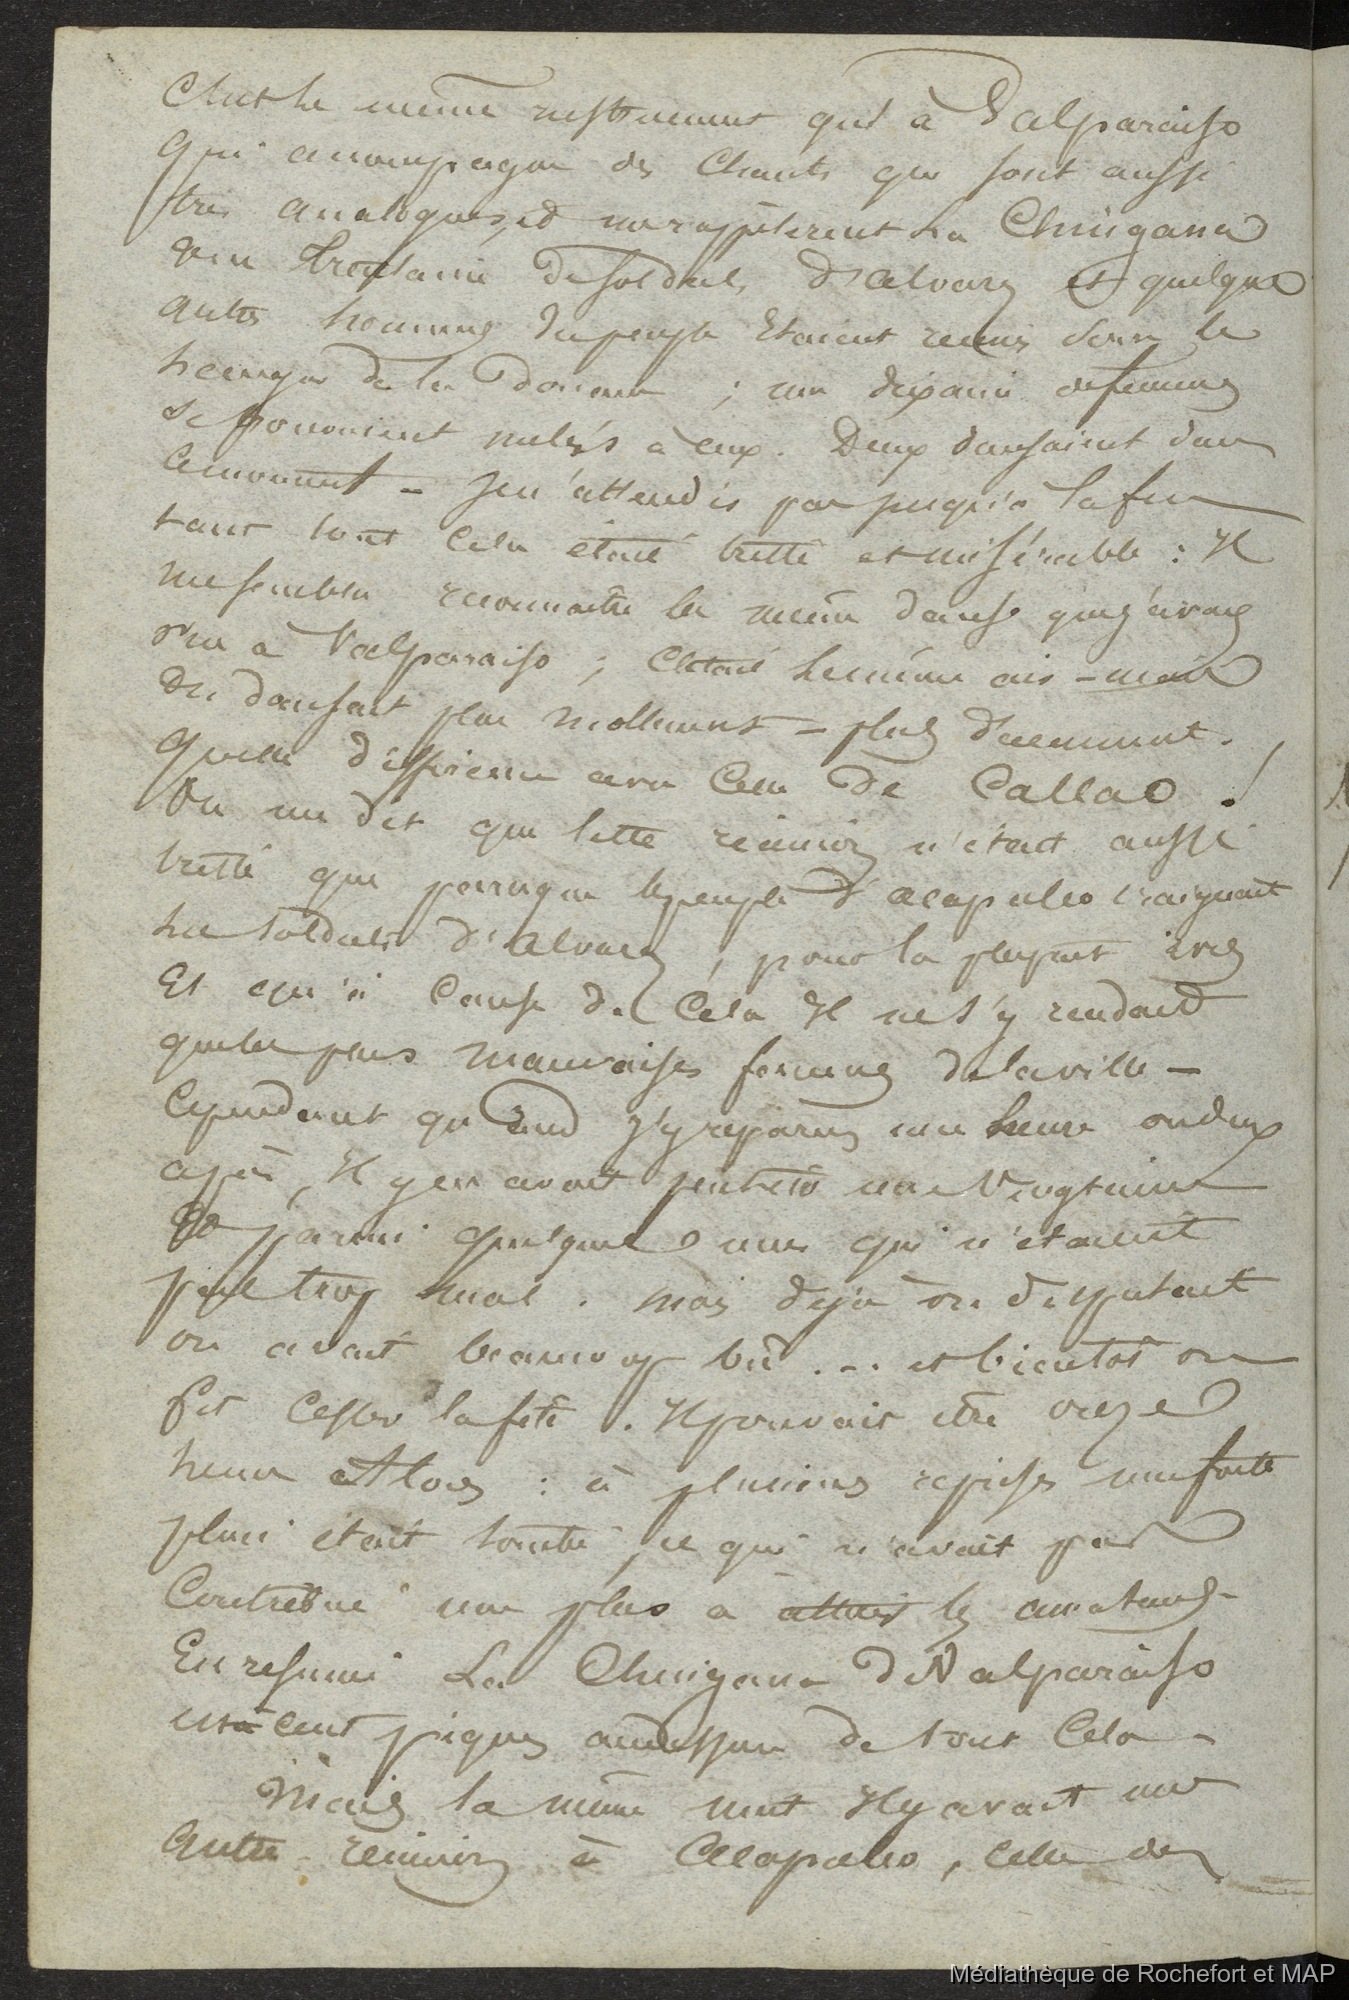 C'est le même instrument qu'à Valparaiso
qui accompagne des Chants qui sont aussi
très analogues, et me rappelèrent la Chingana
une trentaine de soldats d'Alvarez et quelques
autres hommes du peuple étaient réunis sous le
hangar de la Douane ; une dixaine de femmes
se trouvaient mêlés à eux. Deux dansaient dans
ce moment – Je n'attendis pas jusqu'à la fin
tant tout cela était triste et misérable : Il
me sembla reconnaître la même danse que j'avais
vu à Valparaiso ; C'était le même air – mais
On dansait plus mollement – plus décemment.
quelle différence avec celle de Callao !
On me dit que cette réunion n'était aussi
triste que parceque le peuple d'acapulco craignait
les soldats d'Alvarez, pour la plupart ivres
Et qu'à Cause de Cela Il ne s'y rendait
que les plus mauvaises femmes de la ville –
Cependant quand j'y reparus une heure ou deux
après, Il y en avait peutêtre une Vingtaine
Et parmi quelques unes qui n'étaient
pas trop mal. mais déjà on disputait
on avait beaucoup bu ... et bientôt on
fit cesser la fête. Il pouvait être onze
heures Alors : à plusieurs reprises une forte
pluie était tombée, ce qui n'avait pas
Contribué non plus à attirer les amateurs –
En résumé La Chingana de Valparaiso
est à cent piques audessus de tout Cela –
Mais la même nuit Il y avait une
autre réunion à Acapulco, celle des
Médiathèque de Rochefort et MAP